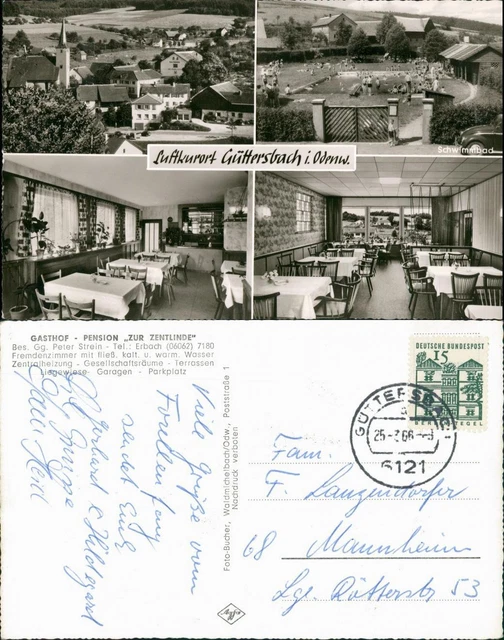 Schwimmbad
Luftkurort Güttersbach i. Odenw.
GASTHOF - PENSION „ZUR ZENTLINDE"
Bes. Gg. Peter Strein - Tel.: Erbach (06062) 7180
Fremdenzimmer mit fließ. kalt. u. warm. Wasser
Zentralheizung - Gesellschaftsräume - Terrassen
Liegewiese - Garagen - Parkplatz
Viele Grüße vom
Forellenfang
sendet Euch
Gerhard & Hildegard
Foto-Bucher, Waldmichelbach/Odw., Poststraße 1
Nachdruck verboten
DEUTSCHE BUNDESPOST
15
TEGEL
GÜTTERSBACH
6121
Fam.
F. Langendörfer
68 Mannheim
Lg. Rötterstr 53
Agfa